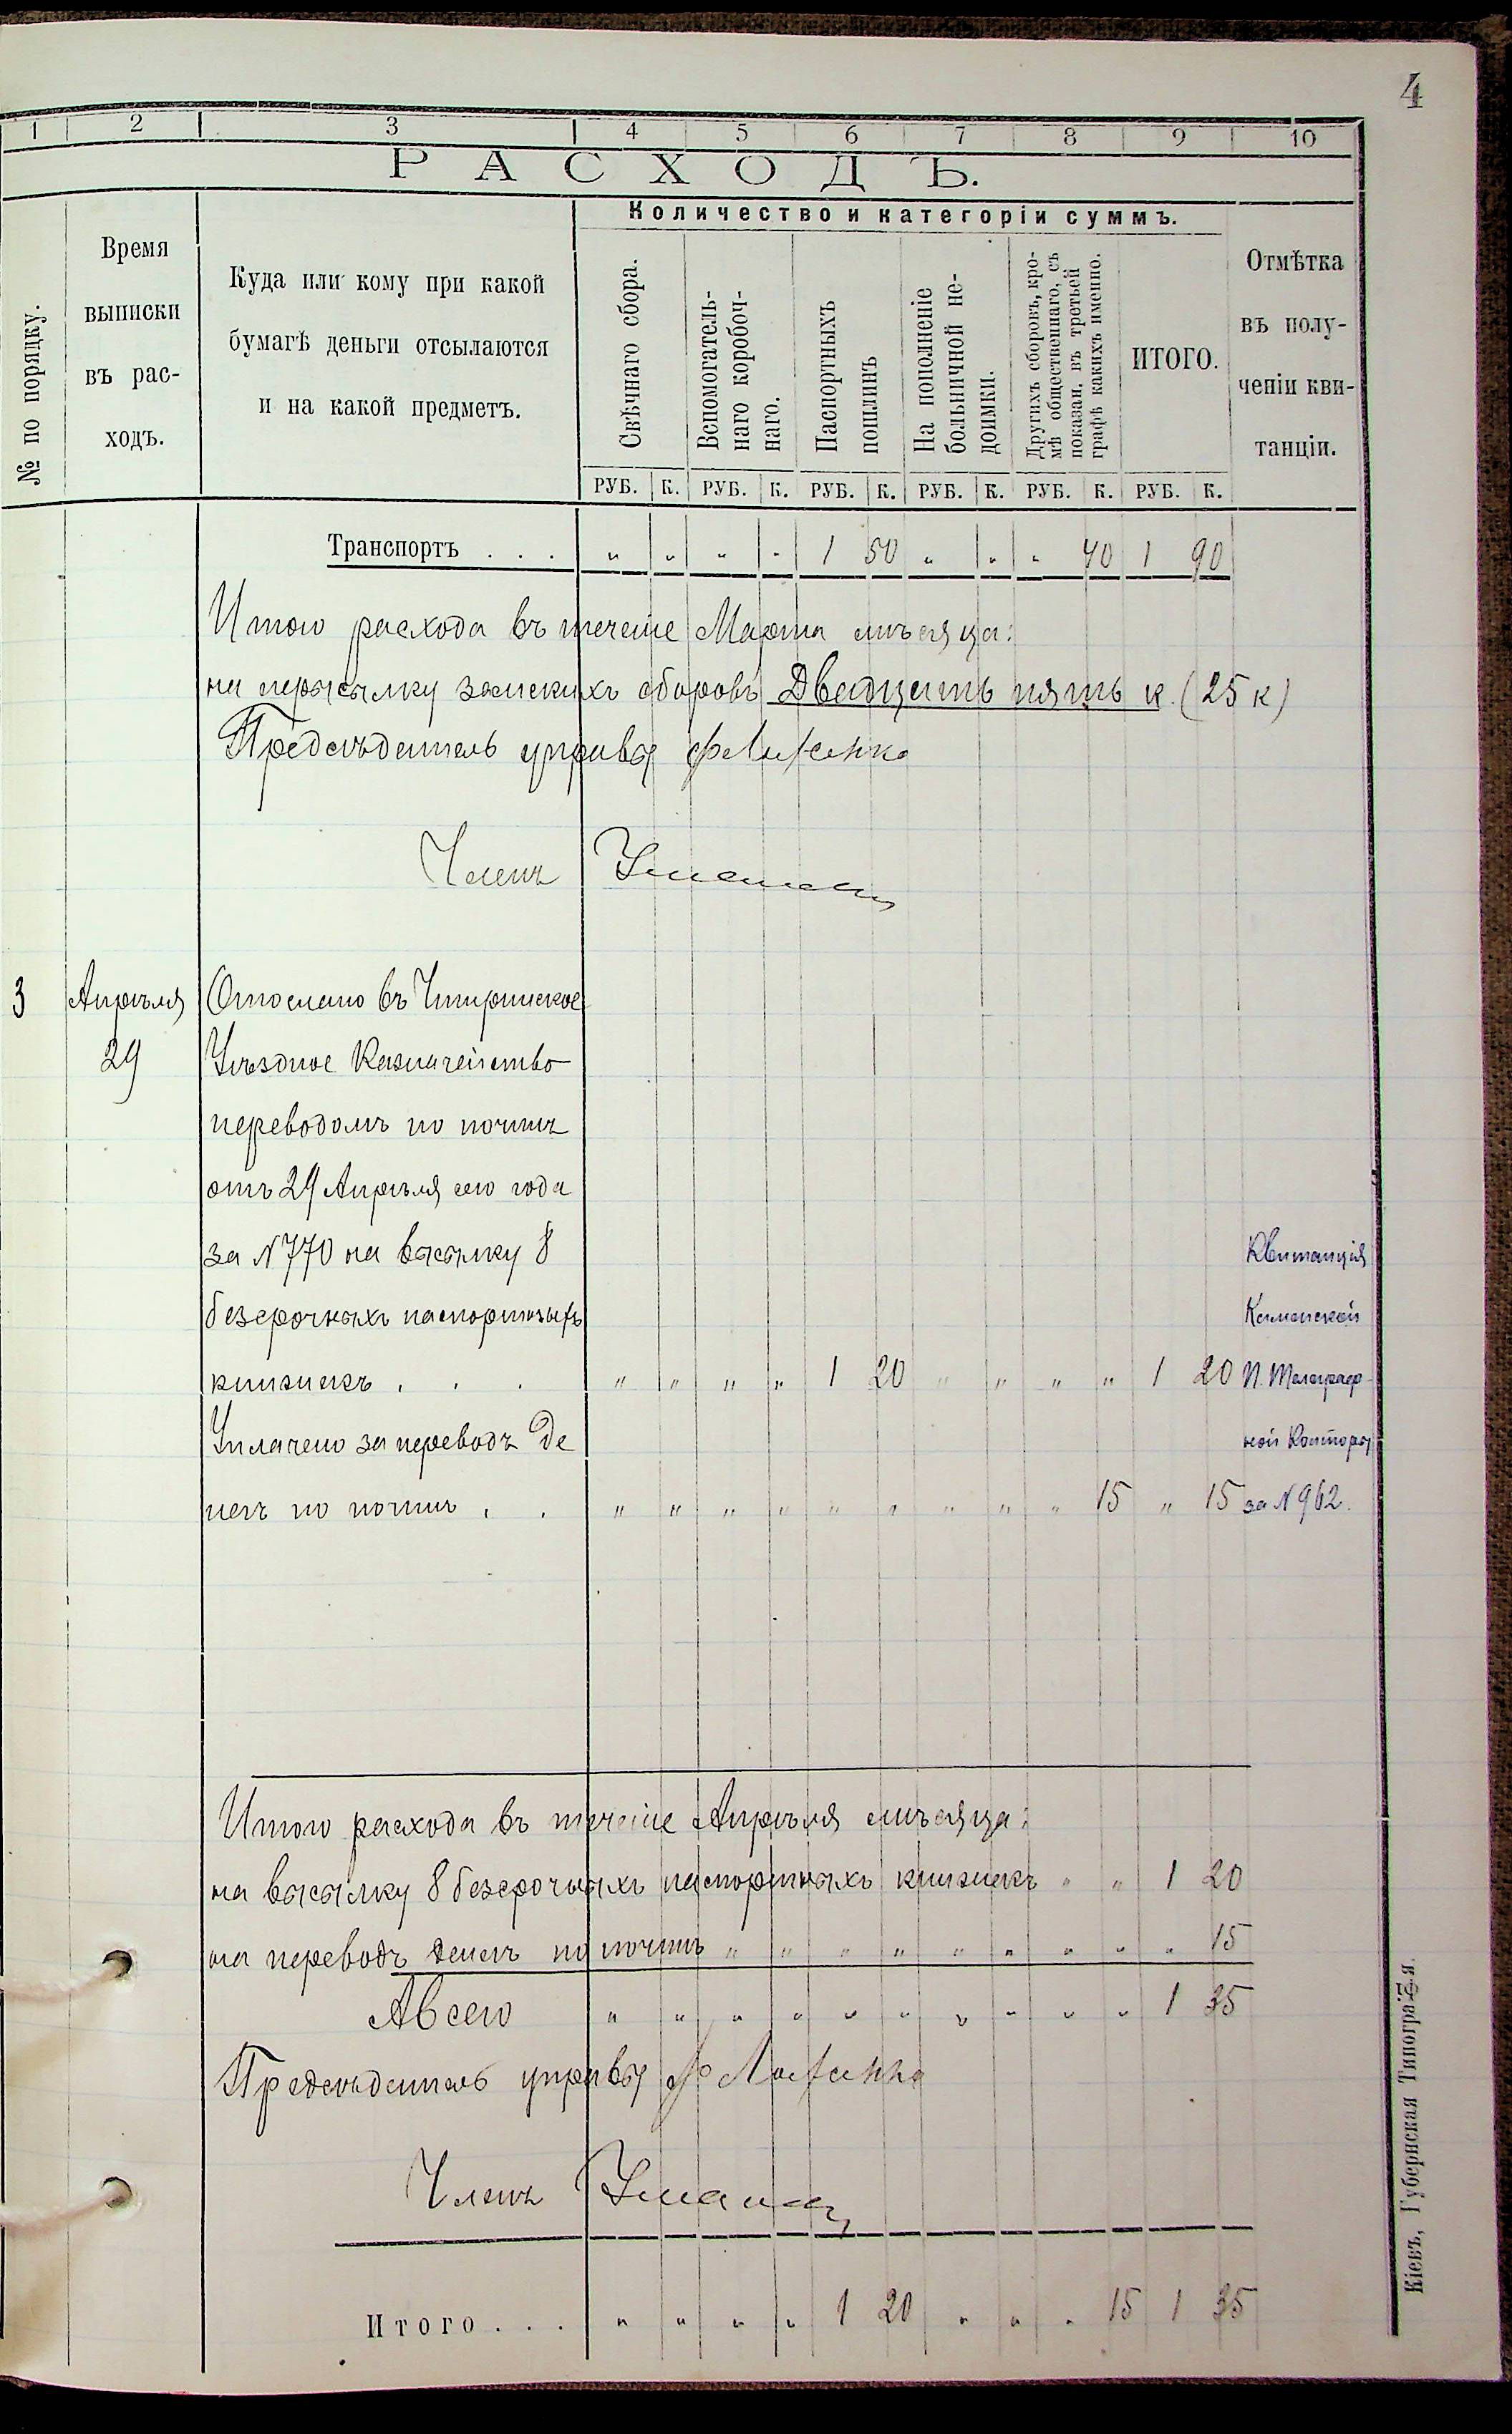 4
1 2 3 4 5 6 7 8 9 10
РАСХОДЪ.
№ по порядку.
Время
выписки
въ рас-
ходъ.
Куда или кому при какой
бумагѣ деньги отсылаются
и на какой предметъ.
Количество и категоріи суммъ.
Свѣчнаго сбора.
Вспомогатель-
наго коробоч-
наго.
Паспортныхъ
пошлинъ
На пополненіе
больничной не-
доимки.
Другихъ сборовъ, кро-
мѣ общественнаго, съ
показан. въ третьей
графѣ какихъ именно.
ИТОГО.
Отмѣтка
въ полу-
ченіи кви-
танціи.
РУБ. К. РУБ. К. РУБ. К. РУБ. К. РУБ. К. РУБ. К.
Транспортъ . . . „ „ „ „ 1 50 „ „ „ 40 1 90
Итого расхода въ теченіе Марта мѣсяца:
на пересылку земскихъ сборовъ Двадцать пять к. (25 к)
Предсѣдатель управы
Членъ
3 Апрѣля Отослано въ Чигиринское
29 Уѣздное Казначейство
переводомъ по почтѣ
отъ 29 Апрѣля сего года
за N 770 на высылку 8 Квитанція
безсрочныхъ паспортныхъ Каменской
книжекъ . . . „ „ „ „ 1 20 „ „ „ „ 1 20 П. Телеграф-
Уплачено за переводъ де ной Конторы
негъ по почтѣ . . „ „ „ „ „ „ „ „ „ 15 „ 15 за N 962.
Итого расхода въ теченіе Апрѣля мѣсяца:
на высылку 8 безсрочныхъ паспортныхъ книжекъ „ „ 1 20
на переводъ денегъ по почтѣ „ „ „ „ „ „ „ „ „ 15
А всего „ „ „ „ „ „ „ „ „ „ 1 35
Предсѣдатель управы
Членъ
Итого . . . „ „ „ „ 1 20 „ „ „ 15 1 35
Кіевъ, Губернская Типографія.